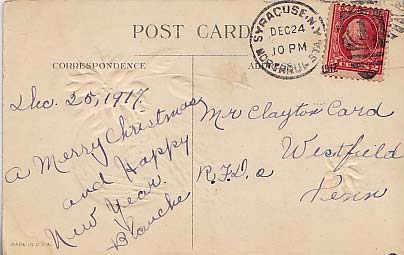 POST CARD
CORRESPONDENCE
SYRACUSE. N.Y.
DEC 24
10 PM
1917
Dec. 20, 1917.
A Merry Christmas
and Happy
New Year.
Blanche
Mr Clayton Card
Westfield
R.F.D.
Penn
MADE IN U.S.A.